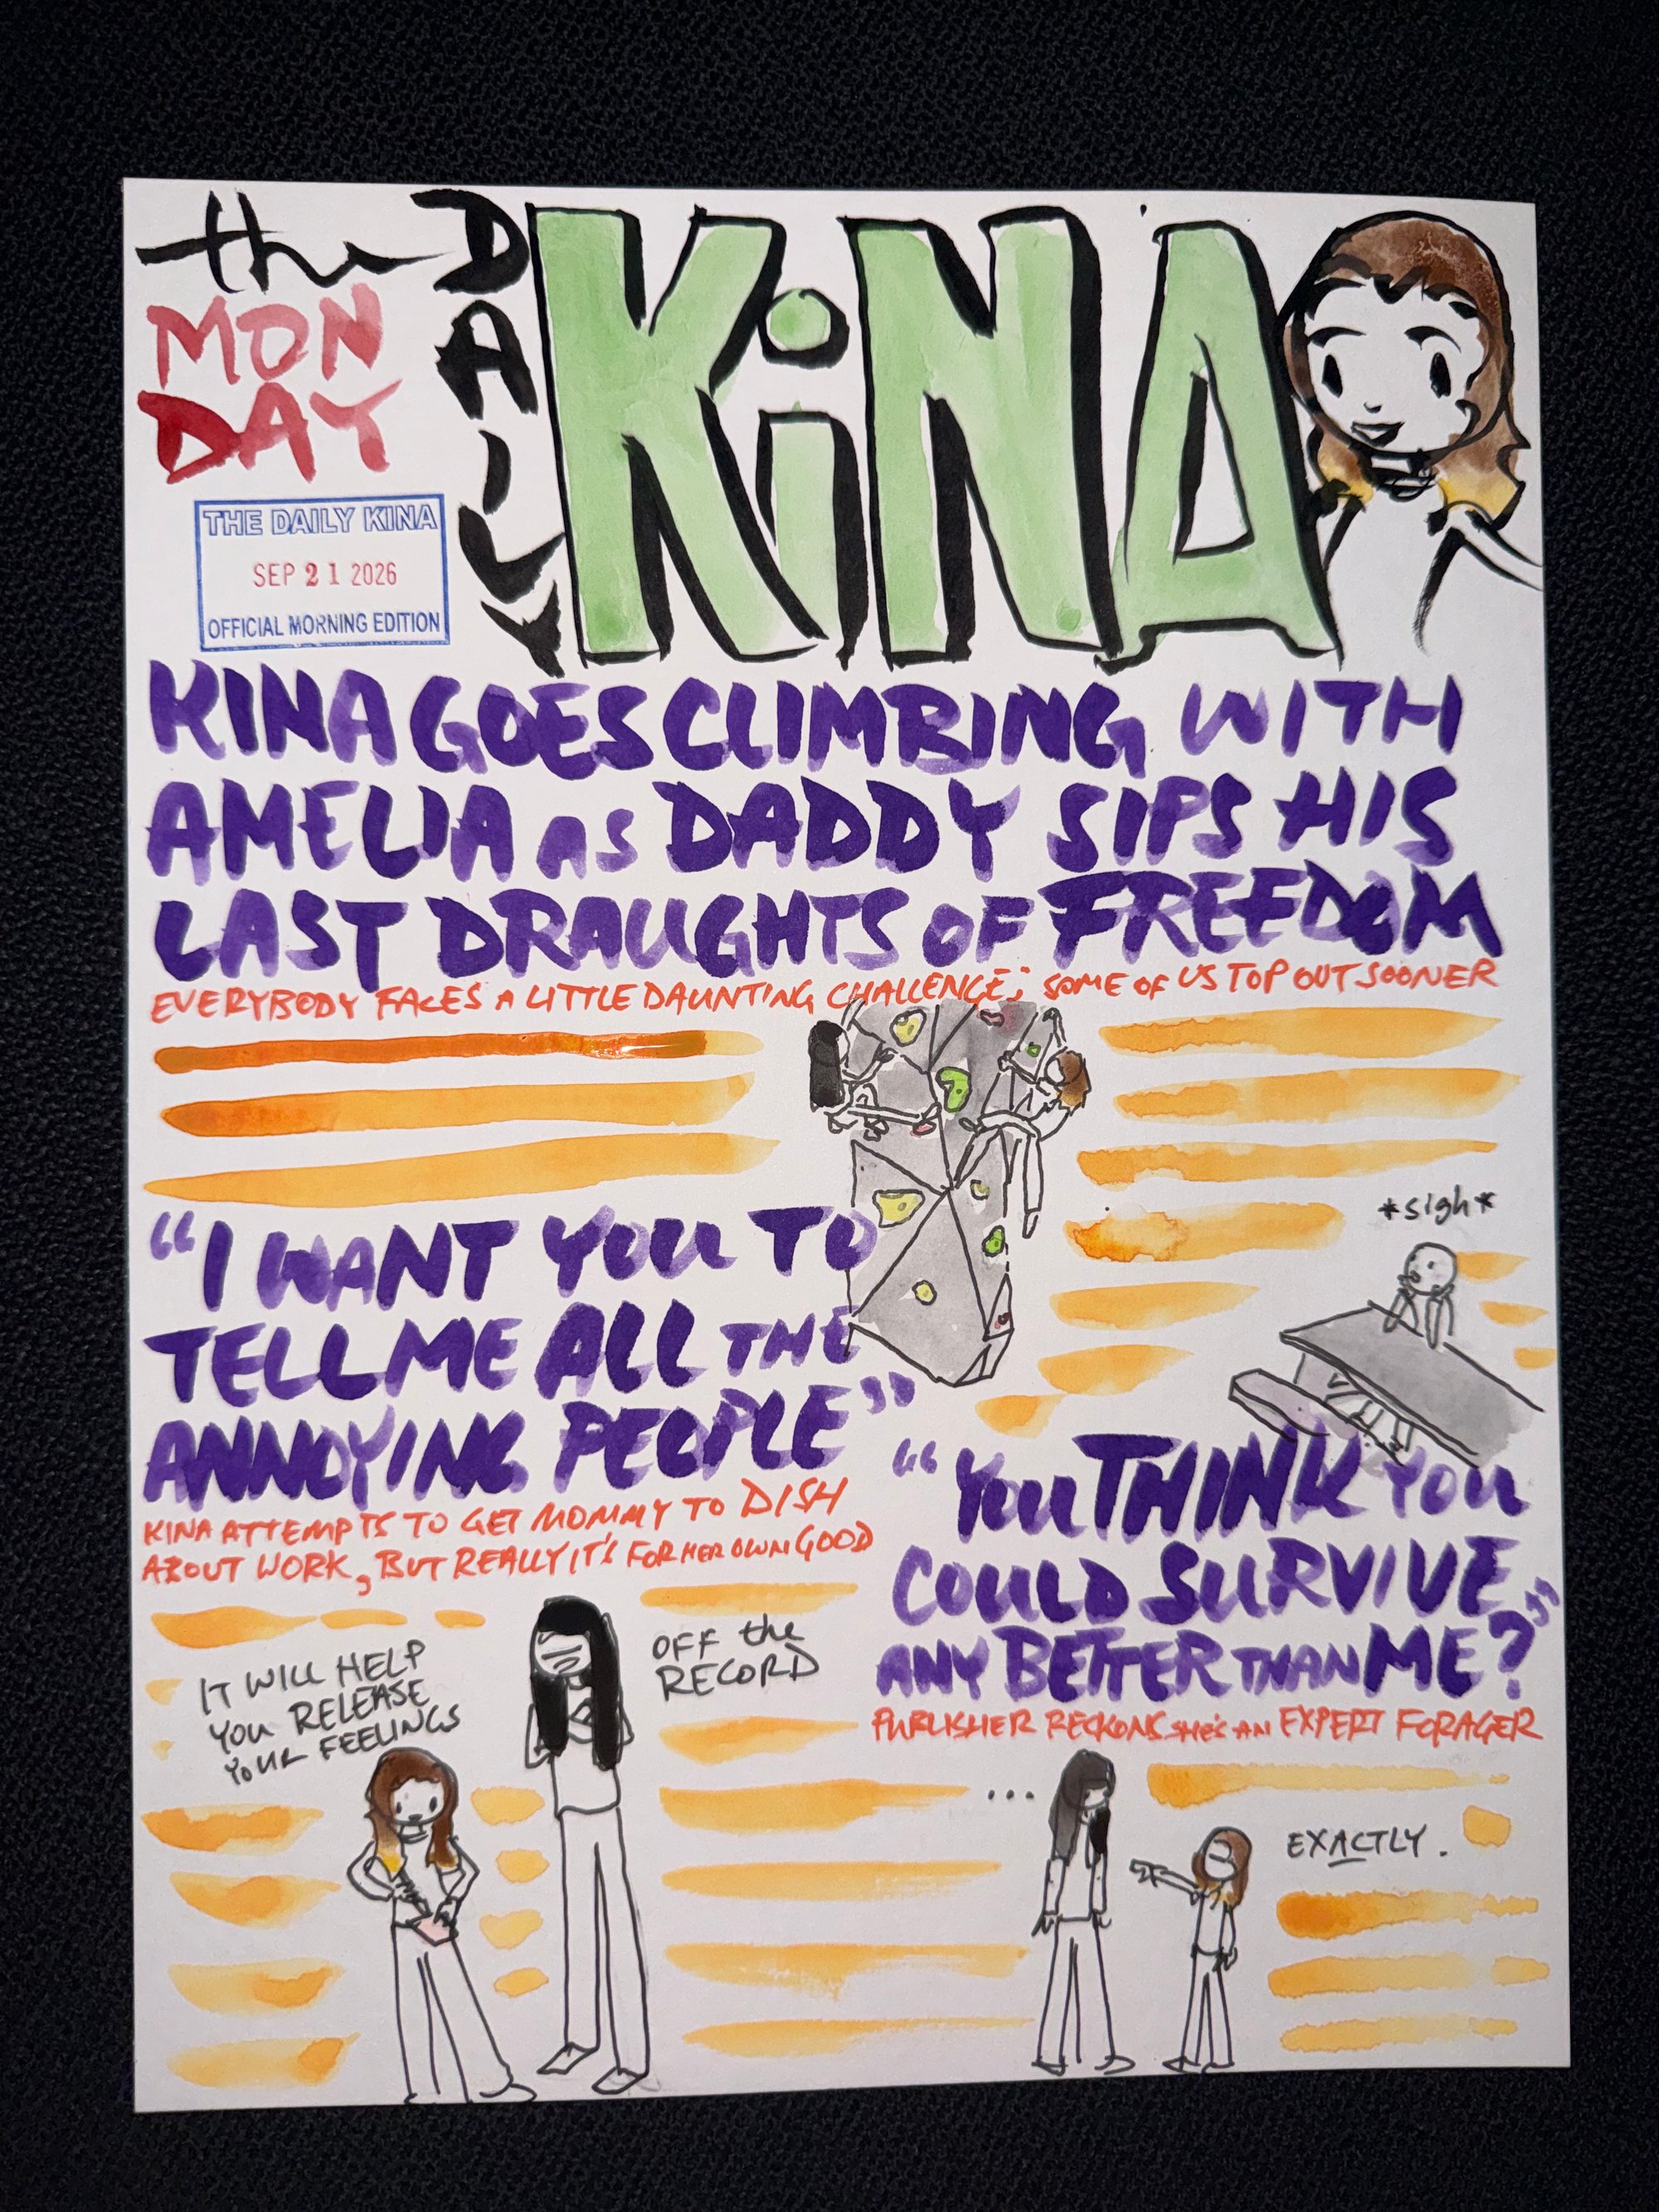 the
DAILY
KiNA
MON
DAY
THE DAILY KINA
SEP 21 2026
OFFICIAL MORNING EDITION
KINA GOES CLIMBING WITH
AMELIA AS DADDY SIPS HIS
LAST DRAUGHTS OF FREEDOM
EVERYBODY FACES A LITTLE DAUNTING CHALLENGE; SOME OF US TOP OUT SOONER
*sigh*
"I WANT YOU TO
TELL ME ALL THE
ANNOYING PEOPLE"
KINA ATTEMPTS TO GET MOMMY TO DISH
ABOUT WORK, BUT REALLY IT'S FOR HER OWN GOOD
IT WILL HELP
YOU RELEASE
YOUR FEELINGS
OFF the
RECORD
"YOU THINK YOU
COULD SURVIVE
ANY BETTER THAN ME?"
PUBLISHER RECKONS SHE'S AN EXPERT FORAGER
...
EXACTLY.